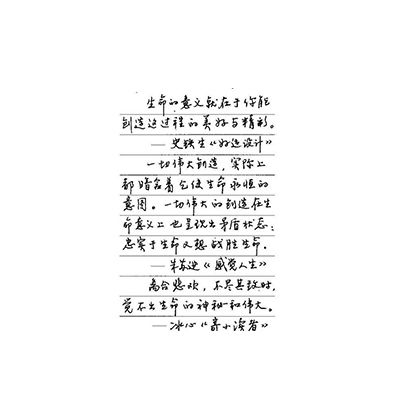 生命的意义就在于你能
创造这过程的美好与精彩。
——史铁生《好运设计》
一切伟大创造，实际上
都暗含着它使生命永恒的
意图。一切伟大的创造在生
命意义上也呈现出矛盾状态：
忠实于生命又想战胜生命。
——朱苏进《感觉人生》
离合悲欢，不尽其致时，
觉不出生命的神秘和伟大。
——冰心《寄小读者》